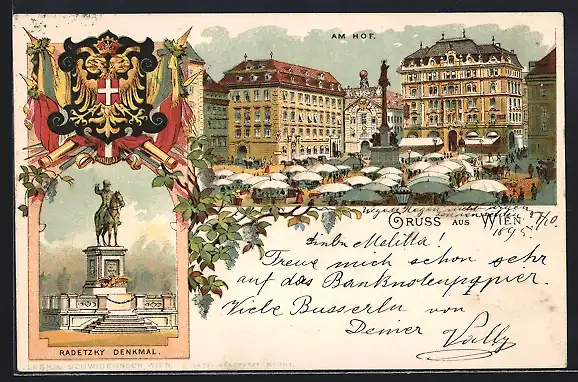 AM HOF.
GRUSS AUS WIEN 27/10
189
Liebe Melitta!
Freue mich schon sehr
auf das Banknotenpapier.
Viele Busserln von
Deiner Vally
RADETZKY DENKMAL.
SCHWIDERNOCH WIEN